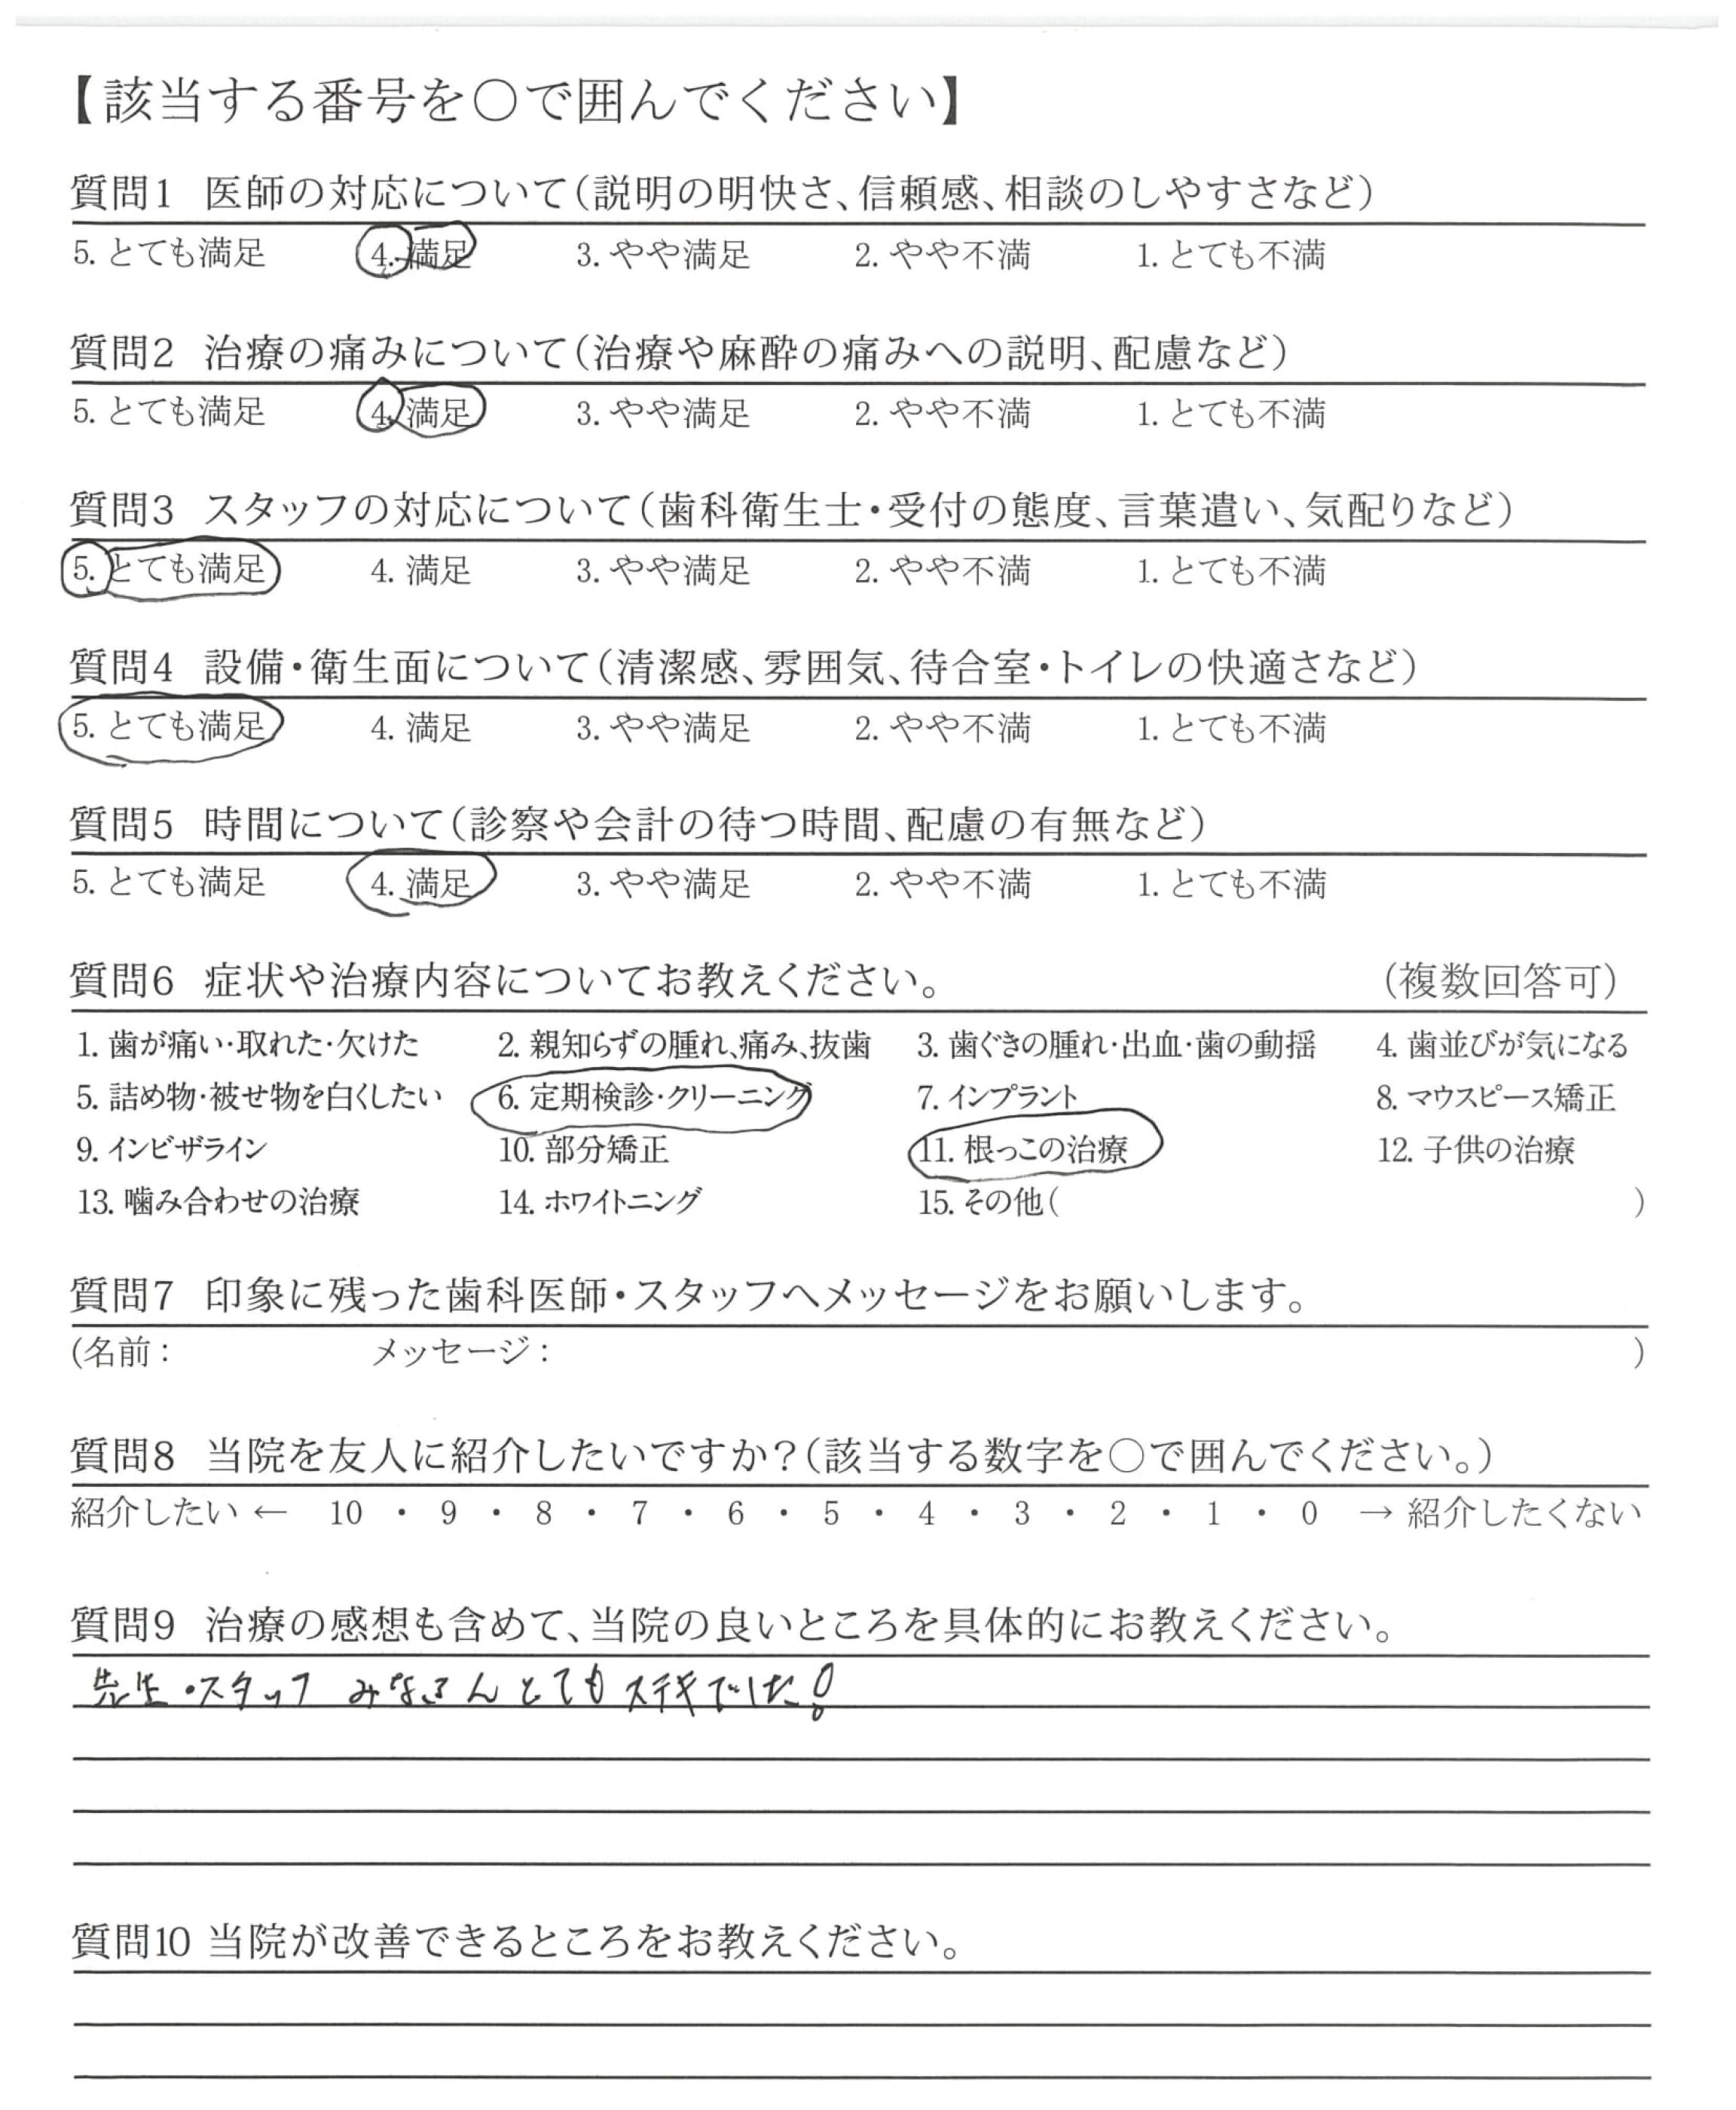 【該当する番号を○で囲んでください】
質問1 医師の対応について(説明の明快さ、信頼感、相談のしやすさなど)
5. とても満足 4. 満足 3. やや満足 2. やや不満 1. とても不満
質問2 治療の痛みについて(治療や麻酔の痛みへの説明、配慮など)
5. とても満足 4. 満足 3. やや満足 2. やや不満 1. とても不満
質問3 スタッフの対応について(歯科衛生士・受付の態度、言葉遣い、気配りなど)
5. とても満足 4. 満足 3. やや満足 2. やや不満 1. とても不満
質問4 設備・衛生面について(清潔感、雰囲気、待合室・トイレの快適さなど)
5. とても満足 4. 満足 3. やや満足 2. やや不満 1. とても不満
質問5 時間について(診察や会計の待つ時間、配慮の有無など)
5. とても満足 4. 満足 3. やや満足 2. やや不満 1. とても不満
質問6 症状や治療内容についてお教えください。 (複数回答可)
1. 歯が痛い・取れた・欠けた 2. 親知らずの腫れ、痛み、抜歯 3. 歯ぐきの腫れ・出血・歯の動揺 4. 歯並びが気になる
5. 詰め物・被せ物を白くしたい 6. 定期検診・クリーニング 7. インプラント 8. マウスピース矯正
9. インビザライン 10. 部分矯正 11. 根っこの治療 12. 子供の治療
13. 噛み合わせの治療 14. ホワイトニング 15. その他( )
質問7 印象に残った歯科医師・スタッフへメッセージをお願いします。
(名前: メッセージ: )
質問8 当院を友人に紹介したいですか?(該当する数字を○で囲んでください。)
紹介したい ← 10 ・ 9 ・ 8 ・ 7 ・ 6 ・ 5 ・ 4 ・ 3 ・ 2 ・ 1 ・ 0 → 紹介したくない
質問9 治療の感想も含めて、当院の良いところを具体的にお教えください。
先生・スタッフ みなさんとてもステキでした!
質問10 当院が改善できるところをお教えください。